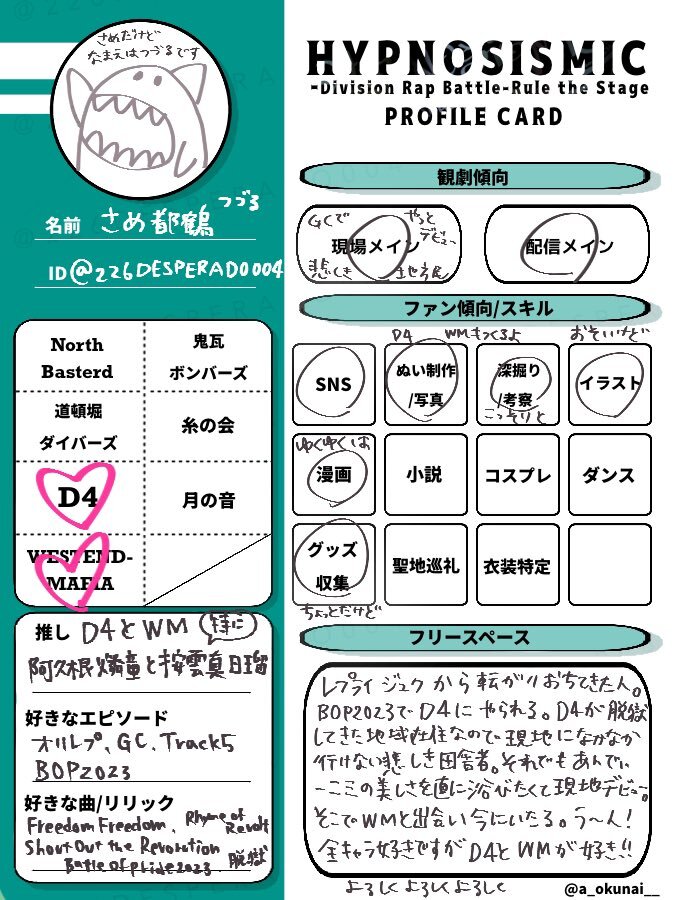 さめだけど
なまえはつづるです
HYPNOSISMIC
-Division Rap Battle-Rule the Stage
PROFILE CARD
名前 さめ都鶴 つづる
ID@226DESPERADO004
観劇傾向
GCで やっと
デビュー
現場メイン
悲しき 地方民
配信メイン
ファン傾向/スキル
D4 WMもつくるよ
おそいけど
SNS
ぬい制作
/写真
深掘り
/考察
こっそりと
イラスト
ゆくゆくは
漫画
小説
コスプレ
ダンス
グッズ
収集
ちょっとだけど
聖地巡礼
衣装特定
North
Basterd
鬼瓦
ボンバーズ
道頓堀
ダイバーズ
糸の会
D4
月の音
WESTEND-
MAFIA
推し D4とWM 特に
阿久根燐童と按雲真日瑠
好きなエピソード
オリレプ、GC、Track5
BOP2023
好きな曲/リリック
Freedom Freedom、Rhyme of Revolt
Shout Out the Revoration
Battle of pride2023、脱獄
フリースペース
レプライ ジュクから転がりおちてきた人。
BOP2023でD4にやられる。D4が脱獄
してきた地域在住なので現地になかなか
行けない悲しき田舎者。それでもあんでぃ
ーニミの美しさを直に浴びたくて現地デビュー。
そこでWMと出会い今にいたる。う〜ん!
全キャラ好きですがD4とWMが好き!!
よろしくよろしくよろしく
@a_okunai__